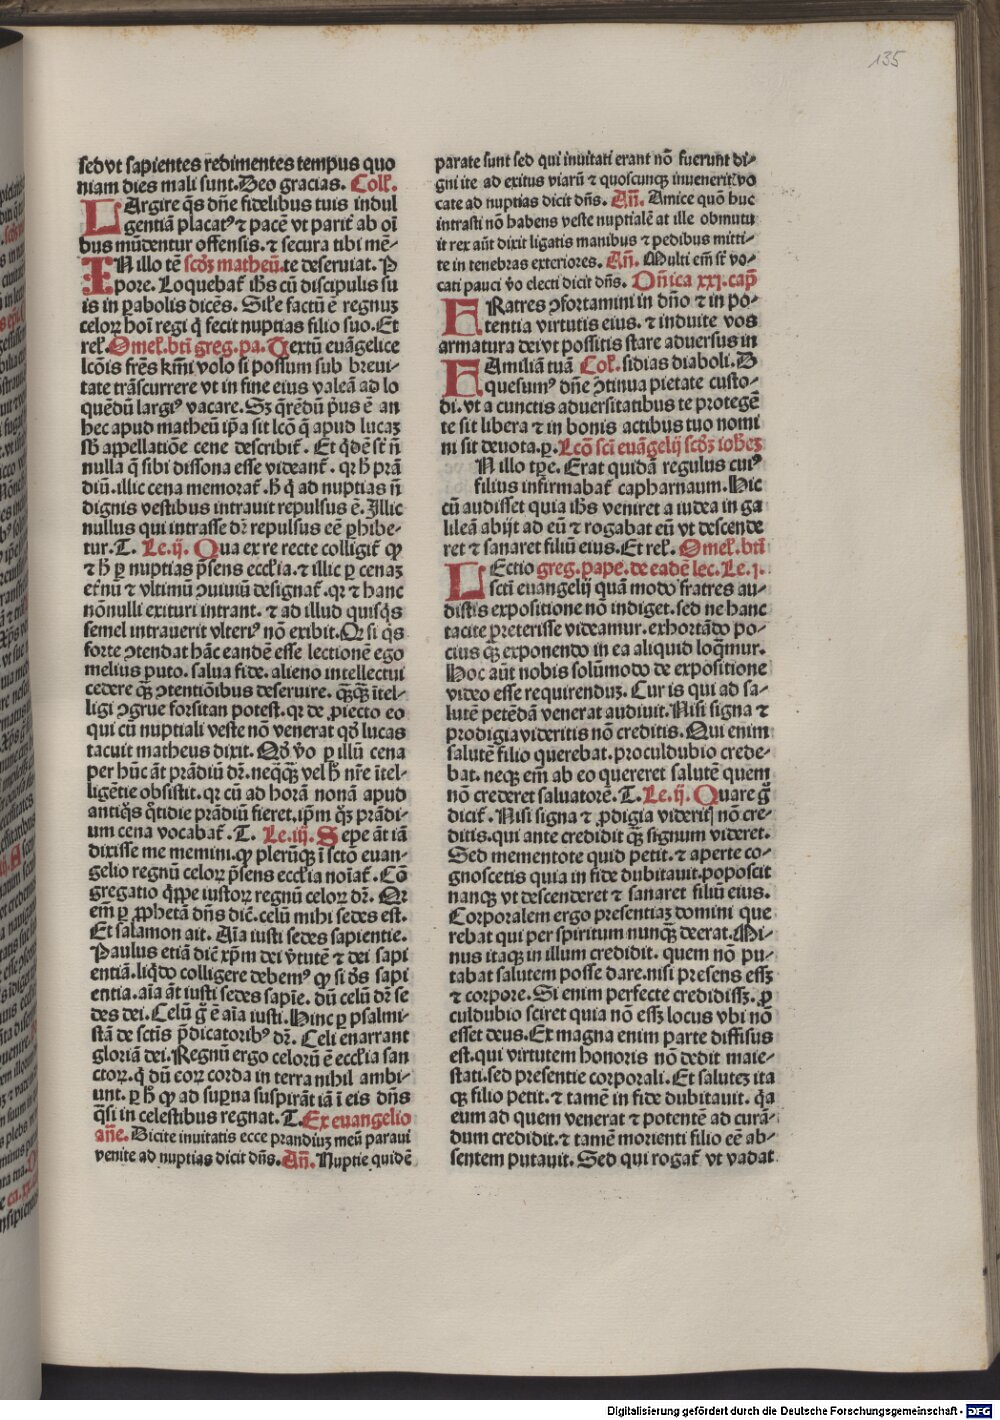 135
sed vt sapientes redimentes tempus quo
niam dies mali sunt. Deo gracias. Coll'.
LArgire q̄s dn̄e fidelibus tuis indul
gentiā placatꝰ ⁊ pacē vt parit̄ ab oī
bus mūdentur offensis. ⁊ secura tibi mē-
IN illo tē scd'ꝫ matheū. te deseruiat. P
pore. Loquebat̄ ihs cū discipulis su
is in ꝑabolis dicēs. Sil'e factū ē regnuꝫ
celoꝝ hoī regi q̇ fecit nuptias filio suo. Et
rel'. Omel'. bt̄i greg. pa. Textū euāgelice
lcōis fr̄es km̄i volo si possum sub breui-
tate trāscurrere vt in fine eius valeā ad lo
quēdū largiꝰ vacare. Sꝫ q̄rēdū pꝰus ē an
hec apud matheū ip̄a sit lcō q̄ apud lucaꝫ
sb̄ appellatiōe cene describit̄. Et q̇dē st̄ n̄
nulla q̄ sibi dissona esse videant̄. qꝛ h̄ prā
diū. illic cena memorat̄. h̄ q̇ ad nuptias n̄
dignis vestibus intrauit repulsus ē. Illic
nullus qui intrasse dr̄ repulsus eē ꝓhibe-
tur. T. Le. ij. Qua ex re recte colligit̄ ꝙ
⁊ h̄ ꝑ nuptias p̄sens eccl'ia. ⁊ illic ꝑ cenaꝫ
et̄nū ⁊ vltimū ꝯuiuiū designat̄. qꝛ ⁊ hanc
nōnulli exituri intrant. ⁊ ad illud quisq̄s
semel intrauerit vlteriꝰ nō exibit. Qꝛ si q̇s
forte ꝯtendat hāc eandē esse lectionē ego
melius puto. salua fide. alieno intellectui
cedere qꝫ ꝯtentiōibus deseruire. qꝫqꝫ ītel-
ligi ꝯgrue forsitan potest. qꝛ de ꝓiecto eo
qui cū nuptiali veste nō venerat qd' lucas
tacuit matheus dixit. Qd' v̄o ꝑ illū cena
per hūc āt prādiū dr̄. neqꝫqꝫ vel h̄ nr̄e ītel-
ligētie obsistit. qꝛ cū ad horā nonā apud
antiq̄s q̇tidie prādiū fieret. ip̄m q̇s prādi-
um cena vocabat̄. T. Le. iij. Sepe āt iā
dixisse me memini. ꝙ plerūqꝫ ī sctō euan-
gelio regnū celoꝝ p̄sens eccl'ia noīat̄. Cō
gregatio q̇ppe iustoꝝ regnū celoꝝ dr̄. Qꝛ
em̄ ꝑ ꝓphetā dn̄s diē. celū mihi sedes est.
Et salamon ait. Aīa iusti sedes sapientie.
Paulus etiā diē xp̄m dei v̄tutē ⁊ dei sapi
entiā. liq̇do colligere debemꝰ ꝙ si d's sapi
entia. aīa āt iusti sedes sapiē. dū celū dr̄ se
des dei. Celū g̊ ē aīa iusti. Hinc ꝑ psalmi-
stā de sctīs p̄dicatoribꝰ dr̄. Celi enarrant
gloriā dei. Regnū ergo celorū ē eccl'ia san
ctoꝝ. q̇ dū coꝝ corda in terra nihil ambi-
unt. ꝑ h̄ ꝙ ad suꝑna suspirāt iā ī eis dn̄s
q̄si in celestibus regnat. T. Ex euangelio
an̄e. Dicite inuitatis ecce prandiuꝫ meū paraui
venite ad nuptias dicit dn̄s. An̄. Nuptie quidē
parate sunt sed qui inuitati erant nō fuerunt di-
gni ite ad exitus viarū ⁊ quoscunqꝫ inuenerit̄ vo
cate ad nuptias dicit dn̄s. An̄. Amice quō huc
intrasti nō habens veste nuptialē at ille obmutu
it rex aūt dixit ligatis manibus ⁊ pedibus mitti-
te in tenebras exteriores. An̄. Multi em̄ st̄ vo-
cati pauci v̄o electi dicit dn̄s. Dn̄ica xxj. cap̄
FRatres ꝯfortamini in dn̄o ⁊ in po-
tentia virtutis eius. ⁊ induite vos
armatura dei vt possitis stare aduersus in
FAmiliā tuā Col'. sidias diaboli. D
quesumꝰ dn̄e ꝯtinua pietate custo-
di. vt a cunctis aduersitatibus te protegē
te sit libera ⁊ in bonis actibus tuo nomi
ni sit deuota. ꝑ. Lcō sci euāgelij scd'ꝫ ioh'eꝫ
N illo tp̄e. Erat quidā regulus cuiꝰ
filius infirmabat̄ capharnaum. Hic
cū audisset quia ihs veniret a iudea in ga
lileā abijt ad eū ⁊ rogabat eū vt descende
ret ⁊ sanaret filiū eius. Et rel'. Omel'. bt̄i
LEctio greg. pape. de eadē lec. Le. j.
scti euangelij quā modo fratres au-
distis expositione nō indiget. sed ne hanc
tacite preterisse videamur. exhortādo po-
cius qꝫ exponendo in ea aliquid loq̄mur.
Hoc aūt nobis solūmodo de expositione
video esse requirenduꝫ. Cur is qui ad sa-
lutē petēdā venerat audiuit. Nisi signa ⁊
prodigia videritis nō creditis. Qui enim
salutē filio querebat. proculdubio crede-
bat. neqꝫ em̄ ab eo quereret salutē quem
nō crederet saluatorē. T. Le. ij. Quare g̊
dicit̄. Nisi signa ⁊ ꝓdigia viderit̄ nō cre-
ditis. qui ante credidit qꝫ signum videret.
Sed mementote quid petit. ⁊ aperte co-
gnoscetis quia in fide dubitauit. poposcit
nanqꝫ vt descenderet ⁊ sanaret filiū eius.
Corporalem ergo presentiaꝫ domini que
rebat qui per spiritum nunqꝫ deerat. Mi-
nus itaqꝫ in illum credidit. quem nō pu-
tabat salutem posse dare. nisi presens essꝫ
⁊ corpore. Si enim perfecte credidissꝫ. ꝓ
culdubio sciret quia nō essꝫ locus vbi nō
esset deus. Ex magna enim parte diffisus
est. qui virtutem honoris nō dedit maie-
stati. sed presentie corporali. Et saluteꝫ ita
qꝫ filio petit. ⁊ tamē in fide dubitauit. q̄a
eum ad quem venerat ⁊ potentē ad curā-
dum credidit. ⁊ tamē morienti filio eē ab-
sentem putauit. Sed qui rogat̄ vt vadat
Digitalisierung gefördert durch die Deutsche Forschungsgemeinschaft - DFG